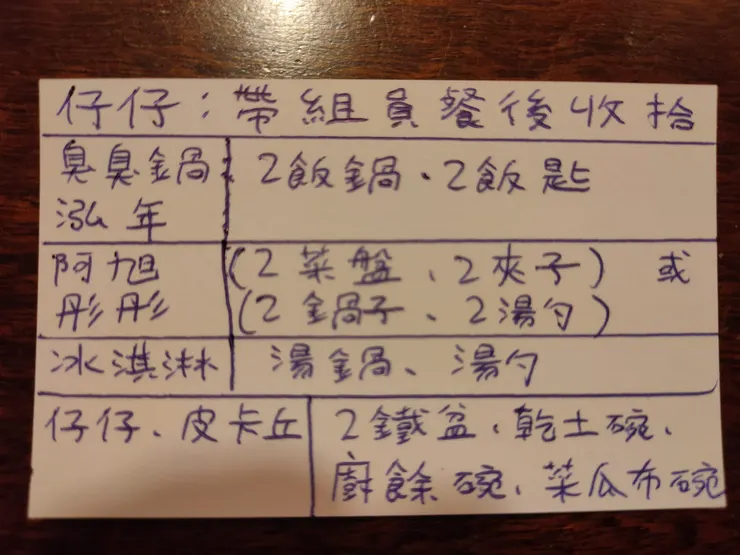 仔仔：帶組員餐後收拾
臭臭鍋 2飯鍋、2飯匙
泓年
阿旭 (2菜盤、2夾子) 或
彤彤 (2鍋子、2湯勺)
冰淇淋 湯鍋、湯勺
仔仔、皮卡丘 2鐵盆、乾土碗、
廚餘碗、菜瓜布碗